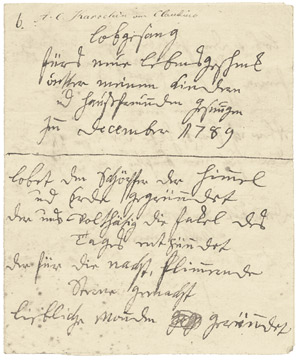 6.
Lobgesang
fürs neue Lebensgeschenk
unter meinen Kindern
und Hausfreunden gesungen
im December 1789
lobet den Schöpfer der Himel
und Erde gegründet
der uns die Fakel des
Tages entzündet
der für die nacht, flimmende
Sterne gemacht
liebliche Monden geründet